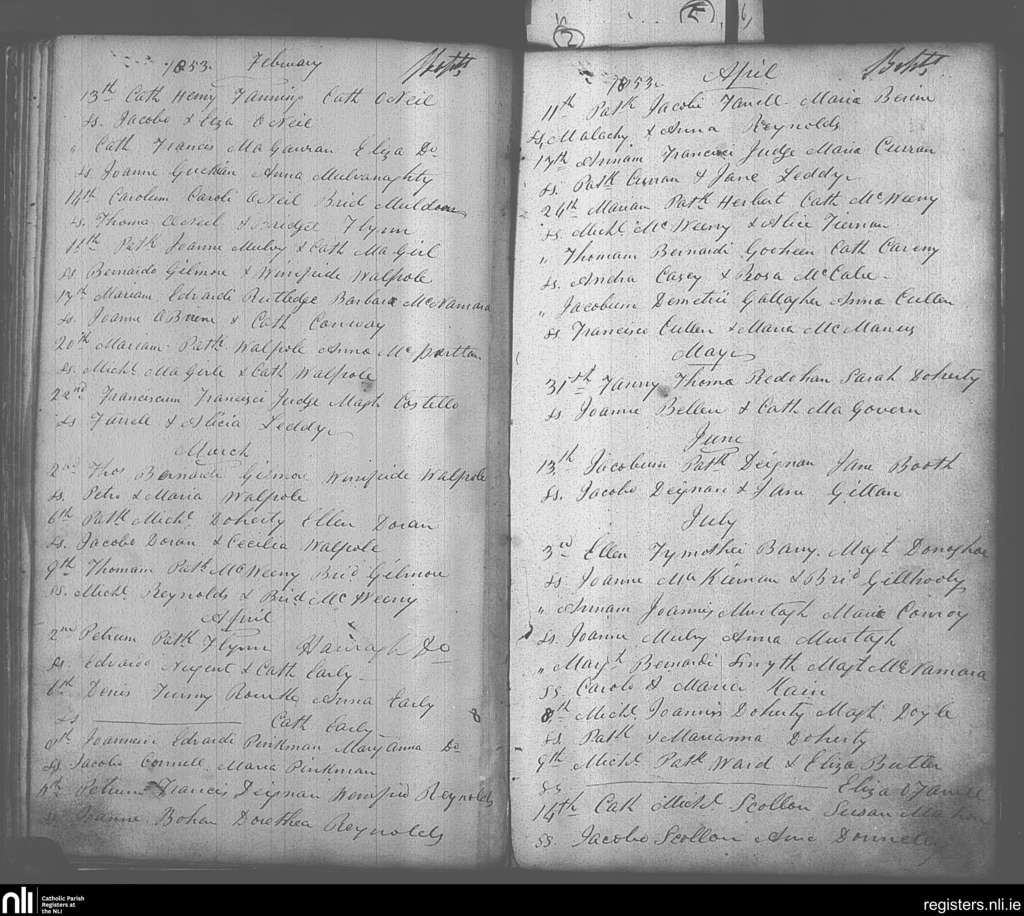 1853. February Bapts
13th Cath Henry Fanning Cath ONeil
ss. Jacobo & Eliza ONeil
" Cath Francis MaGauran Eliza Do
ss. Joanne Guckian Anna Mulvanaghty
14th Carolum Caroli ONeil Brid Muldoon
ss. Thoma ONeil & Bridget Flynn
14th Patk Joanne Mulvy & Cath MaGirl
ss Bernardo Gilmore & Winifride Walpole
17th Mariam Edvardi Rutledge Barbara McNamara
ss. Joanne OBrene & Cath Conway
20th Mariam Patk Walpole Anna McPartlan
ss. Michl MaGirle & Cath Walpole
22nd Franciscum Francisci Judge Magt Costello
ss Farrell & Alicia Leddy
March
2nd Thos Bernardi Gilmore Winifride Walpole
ss. Petro & Maria Walpole
6th Patk Michl Doherty Ellen Doran
ss. Jacobo Doran & Cecilia Walpole
9th Thomam Patk McWeeny Brid Gilmore
ss. Michl Reynolds & Brid McWeeny
April
2nd Petrum Patk Flynn
ss. Edvardo Nugent & Cath Early
6th Denis Rourke Anna Early
ss Cath Early
8th Joannem Edvardi Pinkman Maryanna Do
ss Jacobo Connell Maria Pinkman
Petrum Francis Deignan Winifrid Reynolds
ss Joanne Bohan Dorothea Reynolds
1853. April Bapts
11th Patk Jacobi Farrell Maria Beirne
ss. Malachy & Anna Reynolds
17th Annam Francisci Judge Maria Curran
ss. Patk Curran & Jane Leddy
24th Mariam Patk Herbert Cath McWeeny
ss Michl McWeeny & Alice Tiernan
" Thomam Bernardi Cath
ss. Andrea Casey & Rosa McCabe
" Jacobum Demetrii Gallagher Anna Cullen
ss Francisco Cullen & Maria McManus
May
31st Fanny Thoma Redehan Sarah Doherty
ss Joanne Bellew & Cath MaGovern
June
13th Jacobum Patk Deignan Jane Booth
ss. Jacobo Deignan & Jane Gillan
July
3rd Ellen Tymothei Barry Magt Donoghoe
ss. Joanne MaKiernan & Brid Gillhooly
" Annam Joannis Murtagh Maria Conroy
ss. Joanne Mulvy Anna Murtagh
" Margt Bernardi Smyth Magt McNamara
ss Carolo & Maria Kain
8th Michl Joannis Doherty Magt Doyle
ss Patk & Marianna Doherty
9th Michl Patk Ward & Eliza Butler
ss Eliza OFarrell
14th Cath Michl Scollon Susan Mahon
ss. Jacobo Scollon Anne Donnelly
8
(2)
(5)
nli
Catholic Parish
Registers at
the NLI
registers.nli.ie